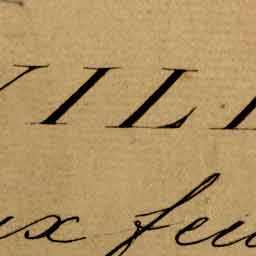 VILL
ux feu